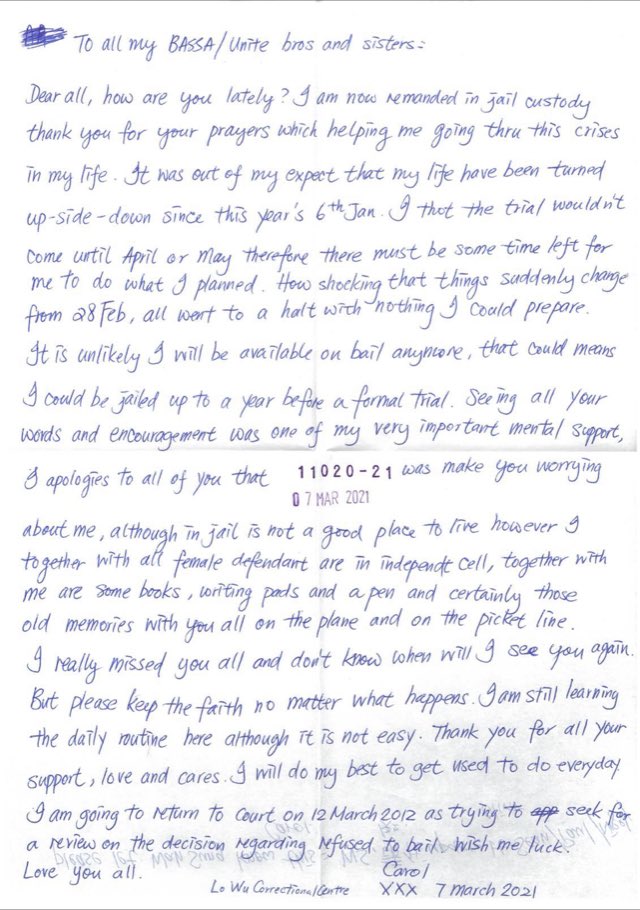 To all my BASSA/Unite bros and sisters:
Dear all, how are you lately? I am now remanded in jail custody
thank you for your prayers which helping me going thru this crises
in my life. It was out of my expect that my life have been turned
up-side-down since this year's 6th Jan. I thot the trial wouldn't
come until April or May therefore there must be some time left for
me to do what I planned. How shocking that things suddenly change
from 28 Feb, all went to a halt with nothing I could prepare.
It is unlikely I will be available on bail anymore, that could means
I could be jailed up to a year before a formal trial. Seeing all your
words and encouragement was one of my very important mental support,
I apologies to all of you that 11020-21 was make you worrying
07 MAR 2021
about me, although in jail is not a good place to live however I
together with all female defendant are in independt cell, together with
me are some books, writing pads and a pen and certainly those
old memories with you all on the plane and on the picket line.
I really missed you all and don't know when will I see you again.
But please keep the faith no matter what happens. I am still learning
the daily routine here although it is not easy. Thank you for all your
support, love and cares. I will do my best to get used to do everyday
I am going to return to Court on 12 March 2012 as trying to seek for
a review on the decision regarding refused to bail, wish me luck.
Love you all. Carol
Lo Wu Correctional Centre XXX 7 March 2021